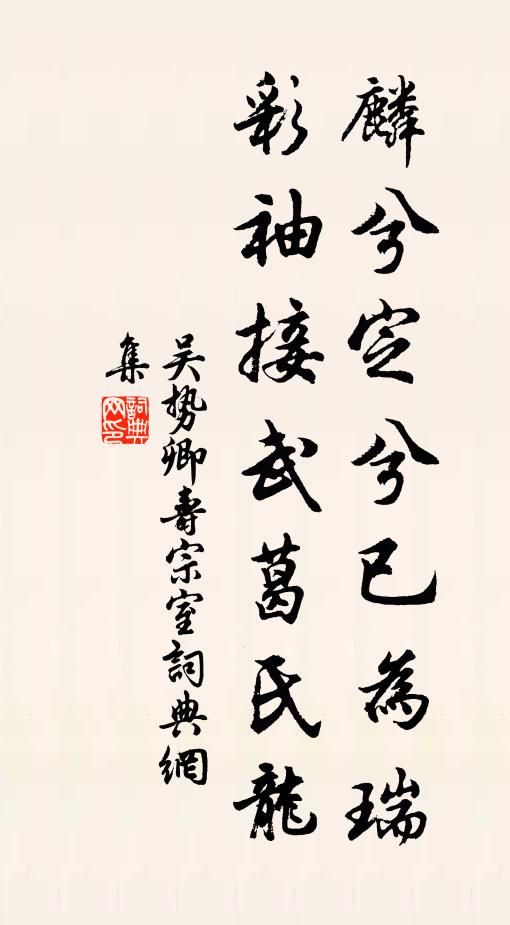 麟兮定兮已為瑞
彩袖接武葛氏龍
吴勢卿壽宗室詞典網
集
詞典网印